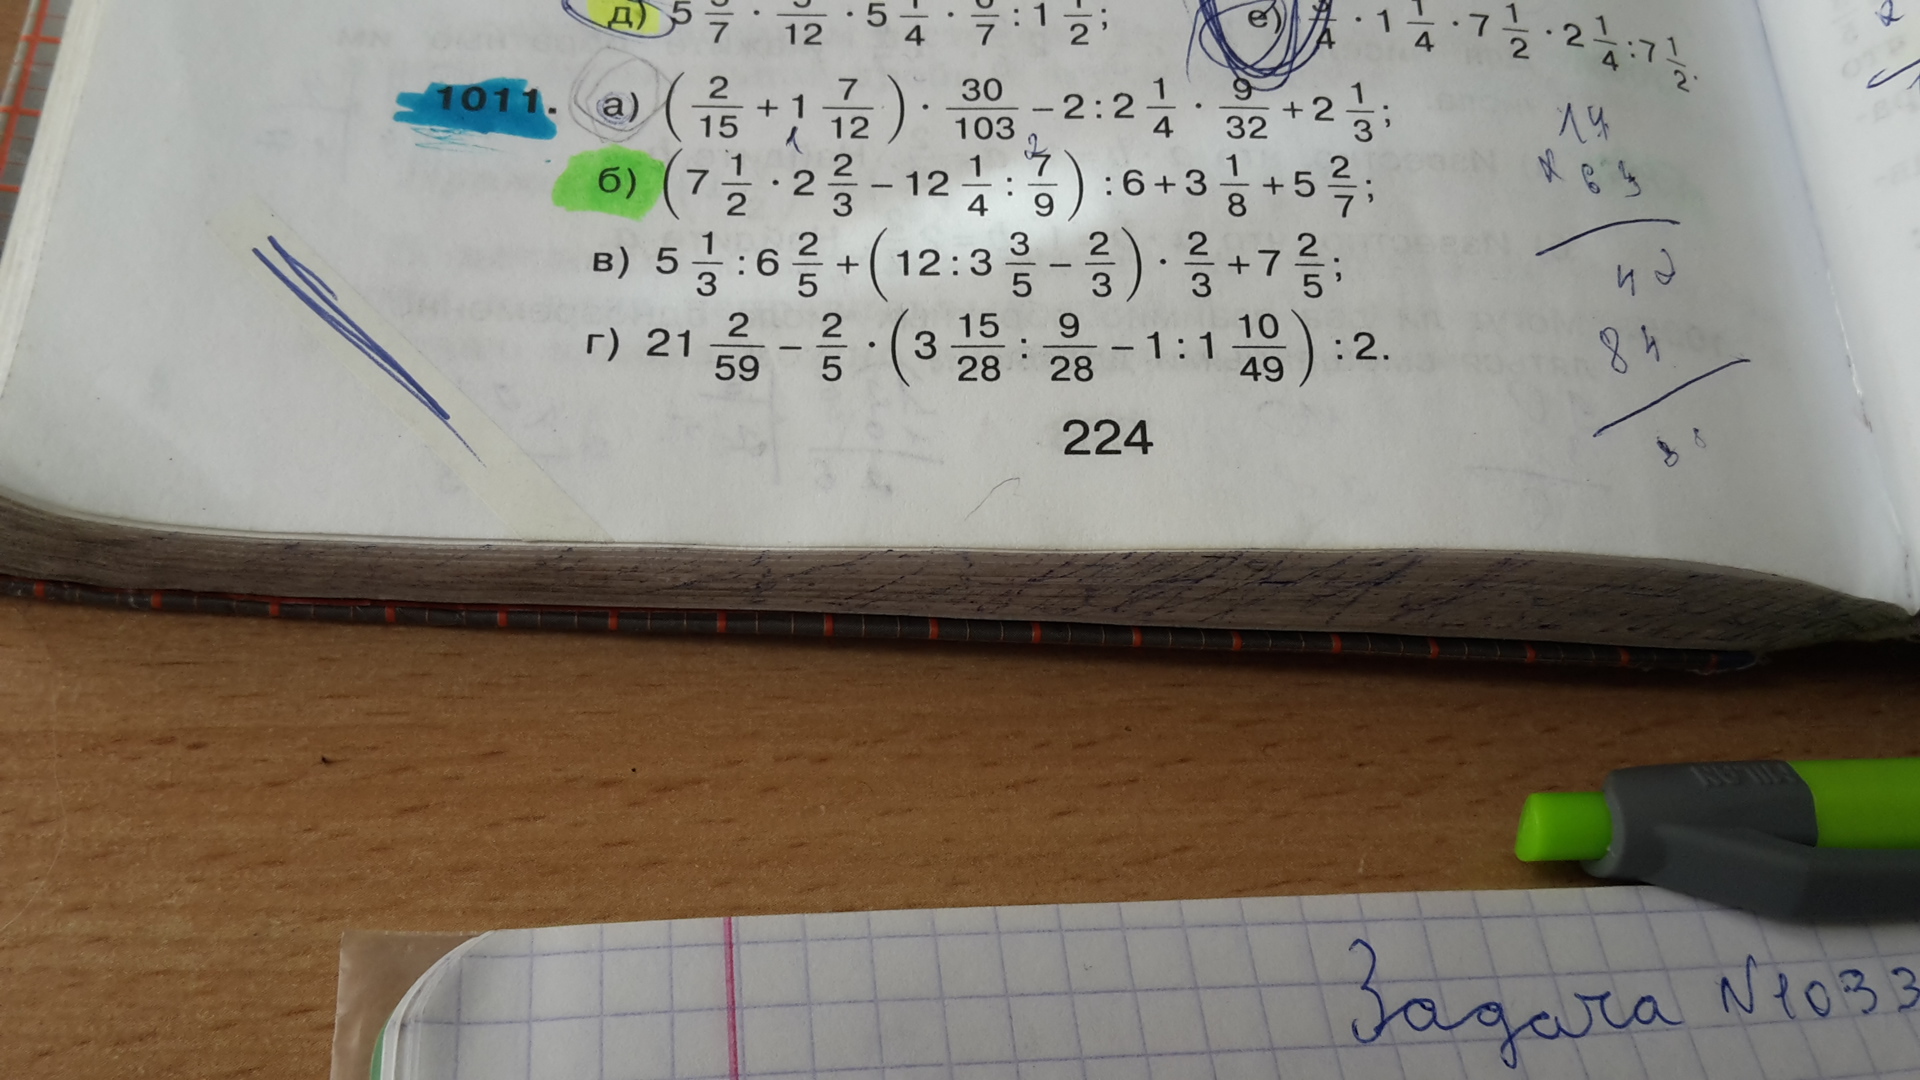 д) 5 5/7 · 5/12 · 5 1/4 · 6/7 : 1 1/2;
е) 3/4 · 1 1/4 · 7 1/2 · 2 1/4 : 7 1/2.
1011. а) (2/15 + 1 7/12) · 30/103 − 2 : 2 1/4 · 9/32 + 2 1/3;
1 2
б) (7 1/2 · 2 2/3 − 12 1/4 : 7/9) : 6 + 3 1/8 + 5 2/7;
в) 5 1/3 : 6 2/5 + (12 : 3 3/5 − 2/3) · 2/3 + 7 2/5;
г) 21 2/59 − 2/5 · (3 15/28 : 9/28 − 1 : 1 10/49) : 2.
224
14
x 63
42
84
Задача N1033